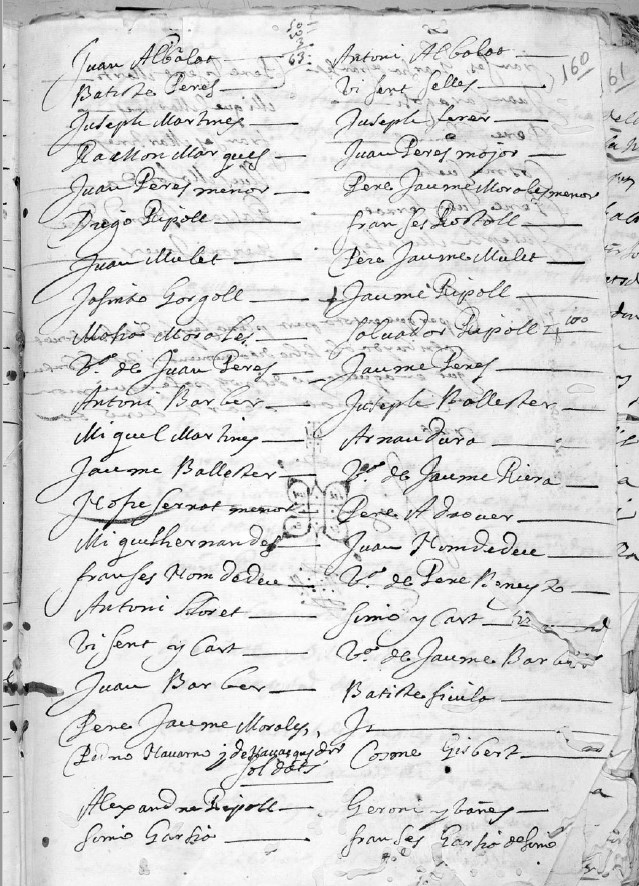 Juan Albalat
Batiste Peres
Juseph Martines
Ramon Marques
Juan Peres menor
Diego Ripoll
Juan Mulet
Josinto Gorgoll
Morales
V.ª de Juan Peres
Antoni Barber
Miquel Martines
Jaume Ballester
Nofre Serrat menor
Miquel hernandes
franses Homdedeu
Antoni Lloret
Visent yCart
Juan Barber
Pere Jaume Morales
Pedro Navarro y de
soldats
Alexandre Ripoll
Simo Garsio
63
Antoni Albalat
160
Visent Selles
Juseph ferer
Juan Peres major
Pere Jaume Morales menor
franses Rostoll
Pere Jaume Mulet
Jaume Ripoll
Salvador Ripoll
Jaume Peres
Juseph Ballester
Arnau dura
V.ª de Jaume Riera
Pere Adrover
Juan Homdedeu
V.ª de Pere Beneyto
Simo yCart
V.ª de Jaume Barber
Batiste
Cosme Gisbert
Geroni ybañes
franses Garsio de Simo